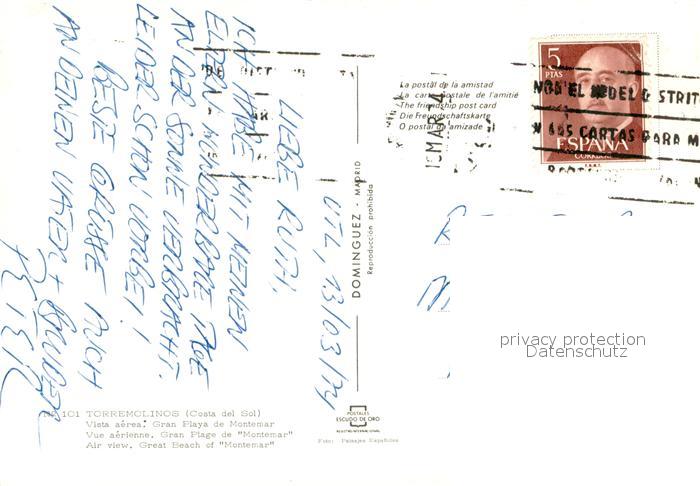 UTL, 13/03/74
LIEBE RUTH,
ICH HABE MIT MEINEN
ELTERN WUNDERBARE TAGE
AN DER SONNE VERBRACHT.
LEIDER SCHON VORBEI!
BESTE GRÜSSE AUCH
AN DEINEN VATER + BRUDER
PETER
La postal de la amistad
La carte postale de l'amitié
The friendship post card
Die Freundschaftskarte
O postal da amizade
15 MAR 74
5
PTAS
ESPAÑA
CORREOS
LAS CARTAS PARA M
DOMINGUEZ - MADRID
Reproducción prohibida
privacy protection
Datenschutz
101 TORREMOLINOS (Costa del Sol)
Vista aérea. Gran Playa de Montemar
Vue aérienne. Gran Plage de "Montemar"
Air view. Great Beach of "Montemar"
POSTALES
ESCUDO DE ORO
REGISTRO INTERNACIONAL
Foto: Paisajes Españoles